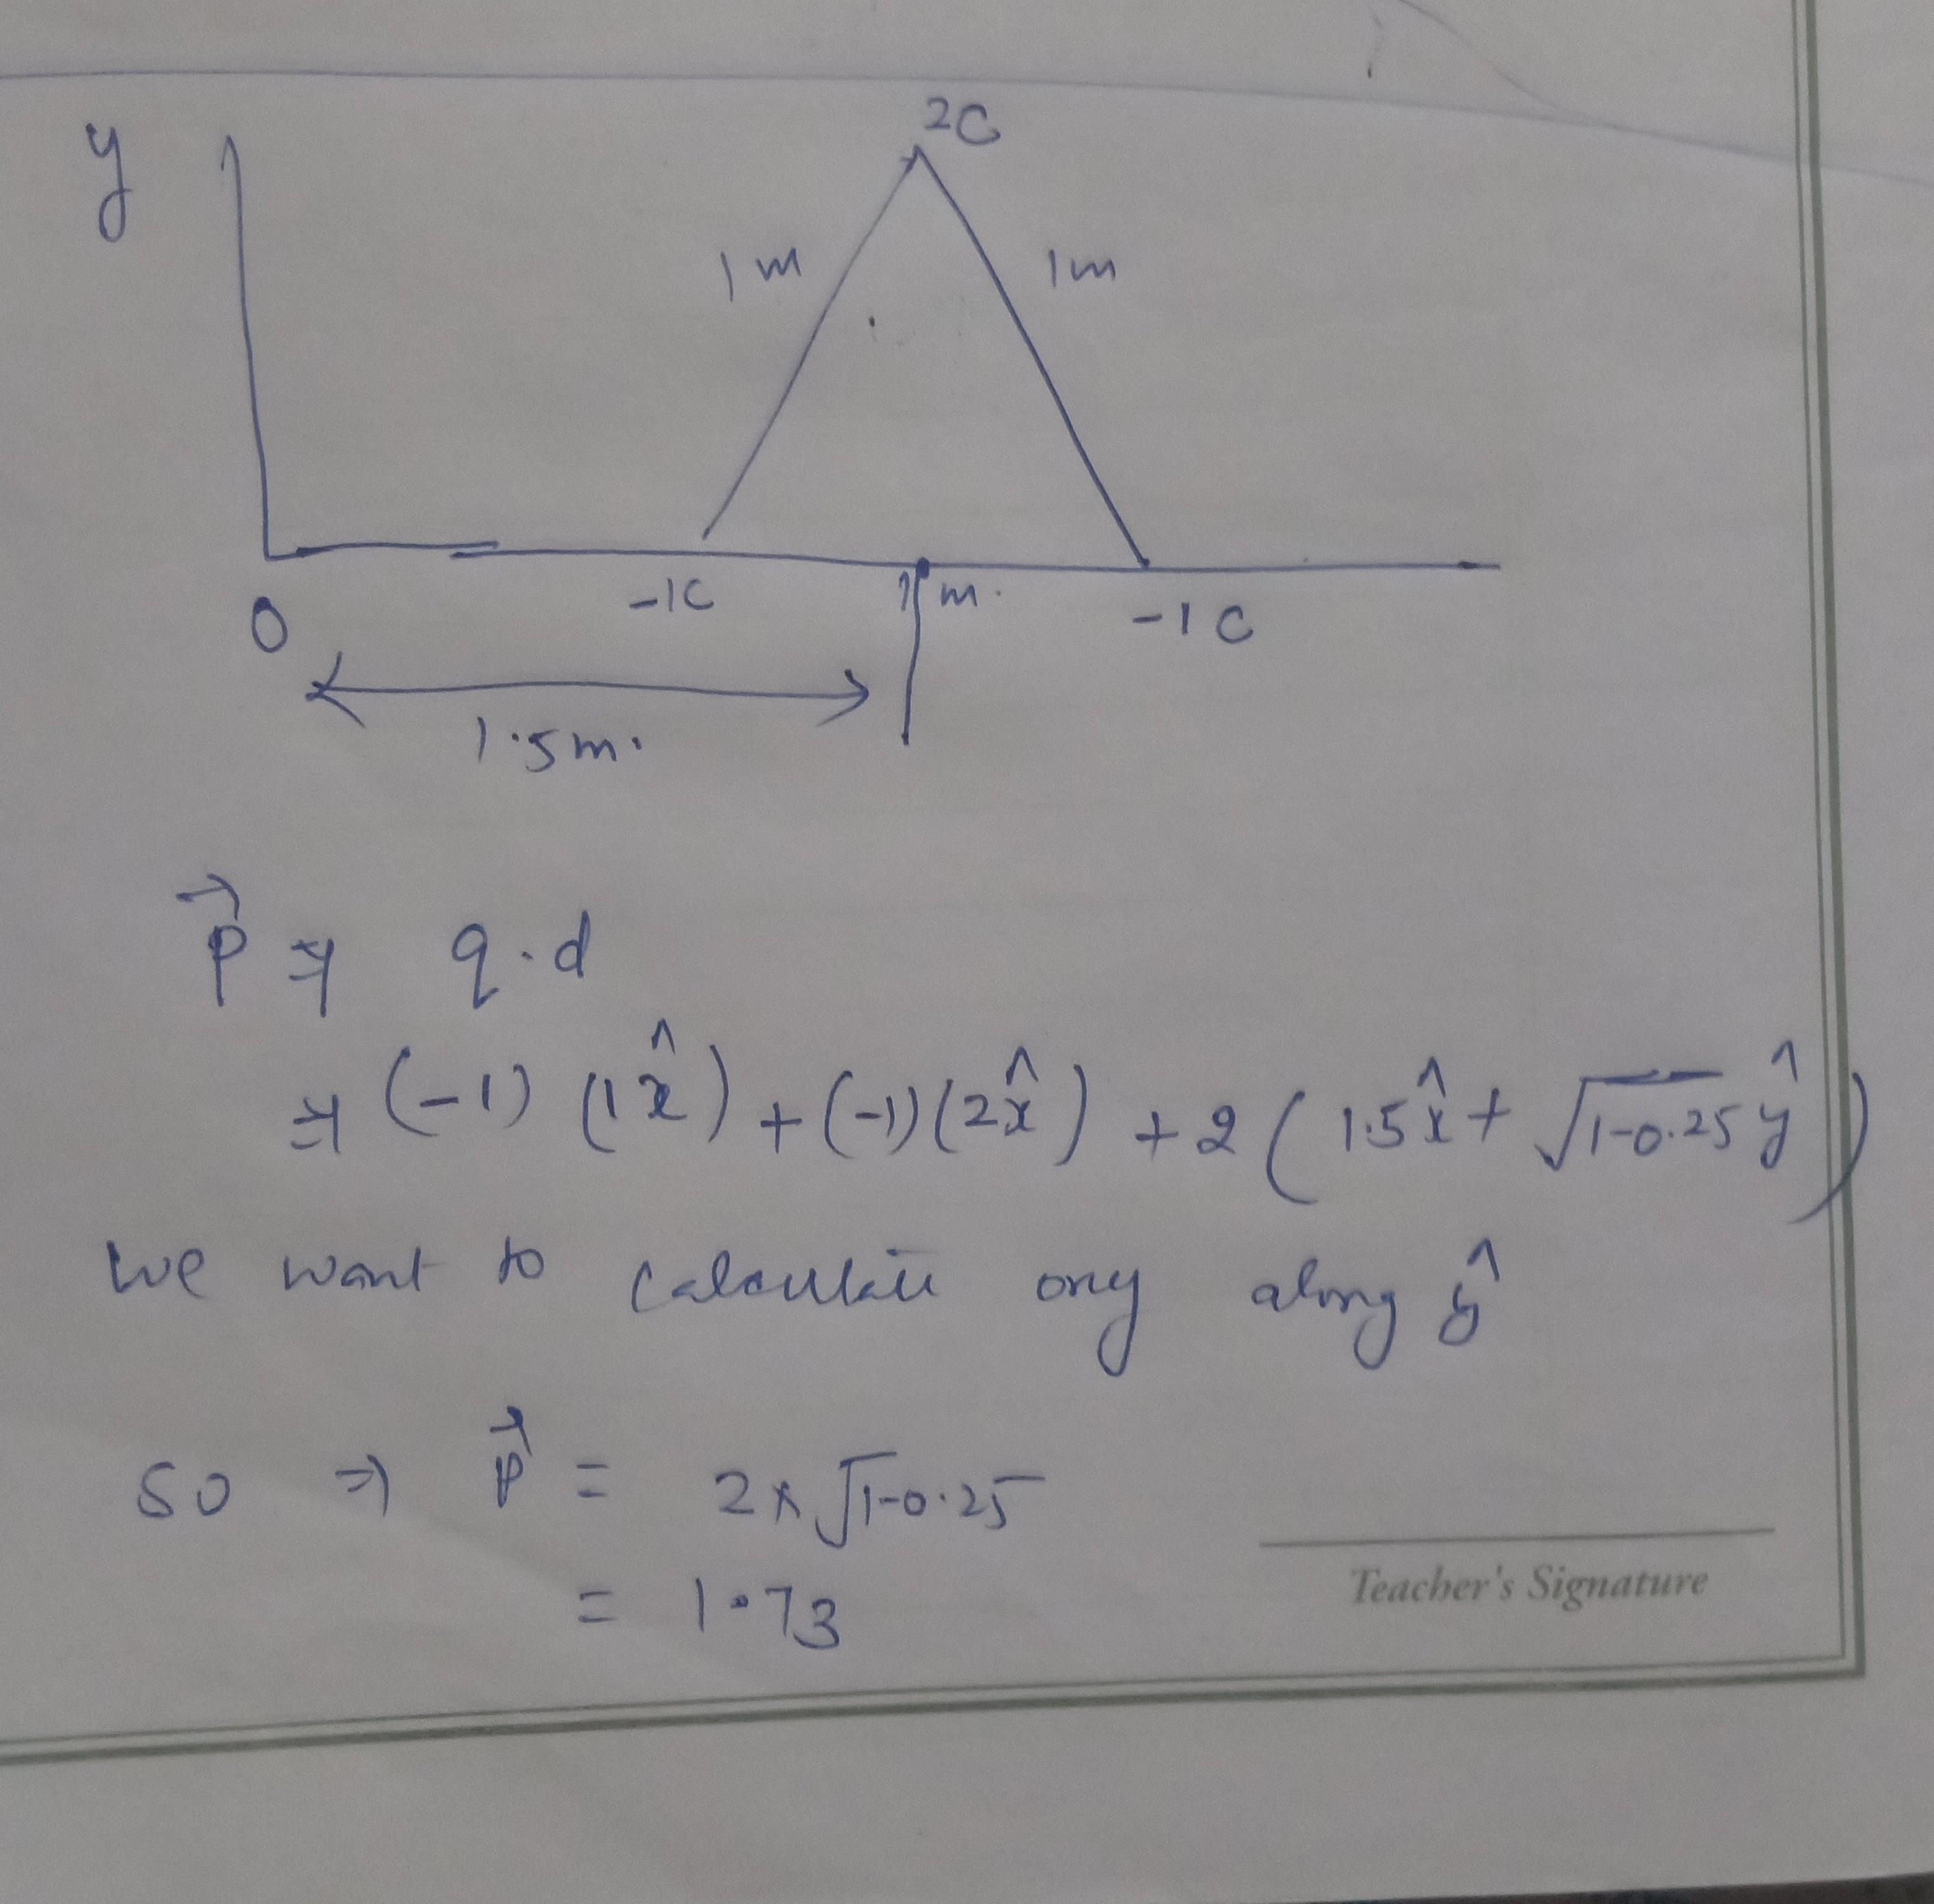 y
2C
1m
1m
0
-1C
1m.
-1C
1.5m.
P⃗ ⇒ q.d
⇒ (-1) (1x̂) + (-1)(2x̂) + 2 ( 1.5x̂ + √1-0.25 ŷ )
we want to calculate ony along ŷ
so ⇒ P⃗ = 2 x √1-0.25
= 1.73
Teacher's Signature